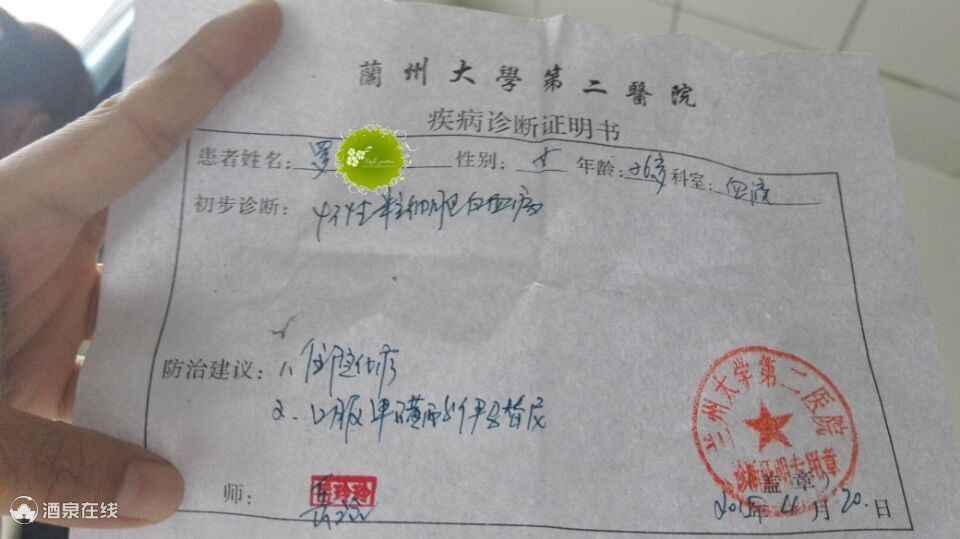 蘭州大學第二醫院
疾病诊断证明书
患者姓名：罗 性别：女 年龄：26岁 科室：血液
初步诊断：慢性粒细胞白血病
防治建议：1、住院治疗
2、口服甲磺酸伊马替尼
兰州大学第二医院
证明专用章
师：
（盖章）
2015年4月20日
酒泉在线